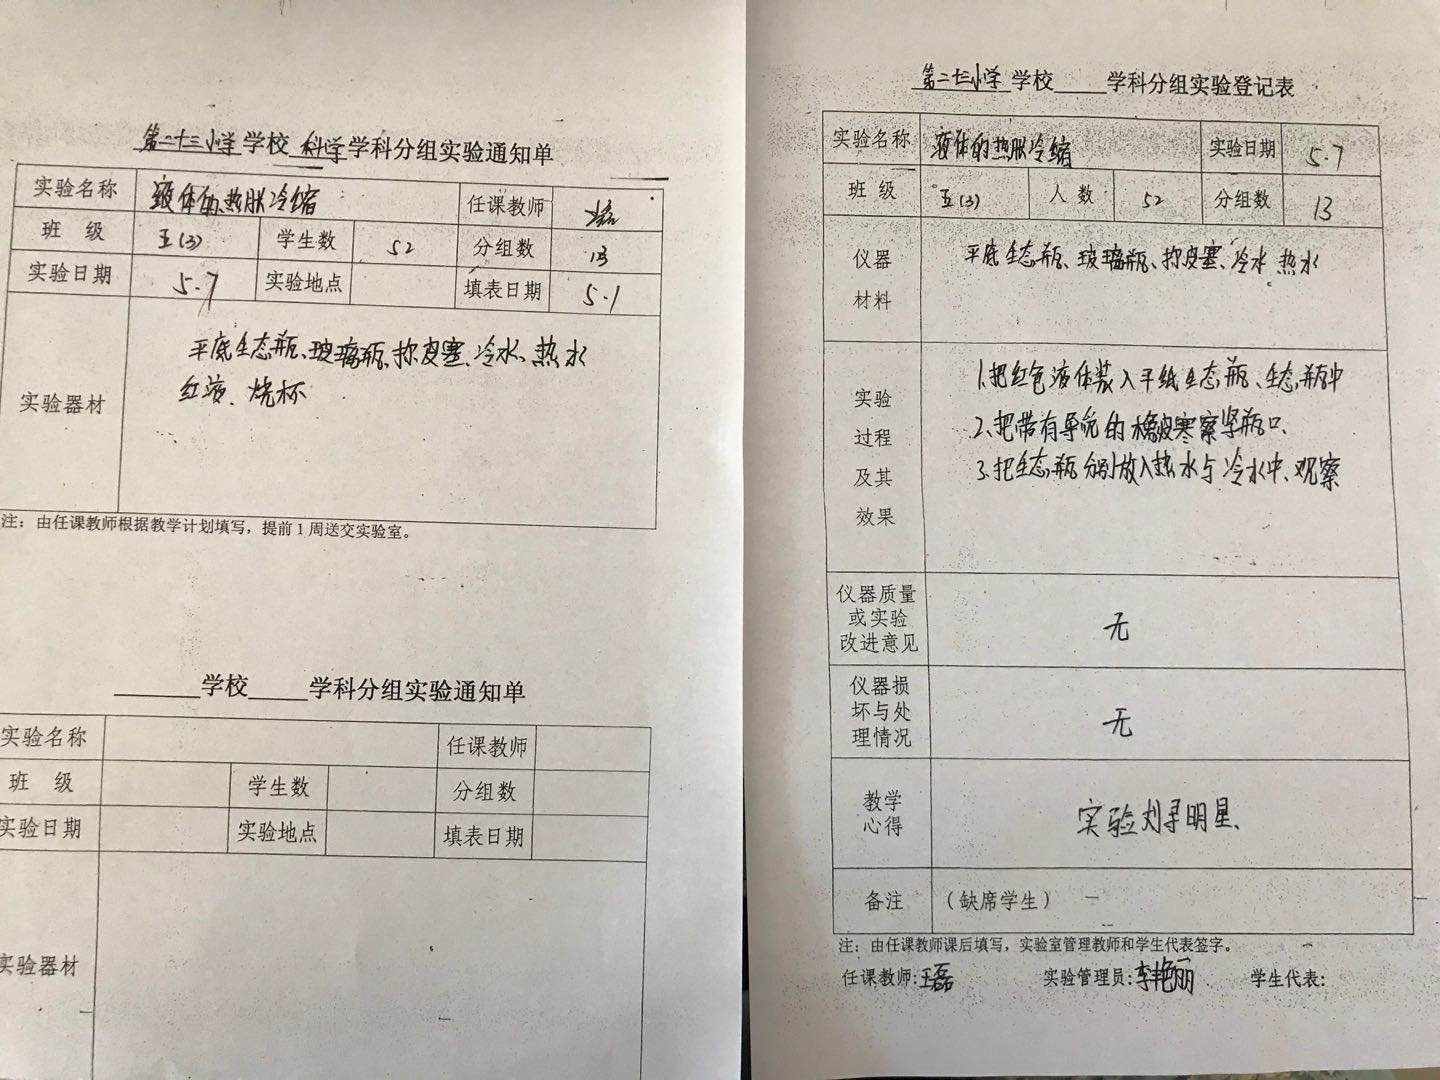 第二十三小学学校 科学学科分组实验通知单
实验名称 液体的热胀冷缩 任课教师
班 级 五(3) 学生数 52 分组数 13
实验日期 5.7 实验地点 填表日期 5.1
实验器材
平底生态瓶、玻璃瓶、橡皮塞、冷水、热水
红液、烧杯
注：由任课教师根据教学计划填写，提前1周送交实验室。
学校 学科分组实验通知单
实验名称 任课教师
班 级 学生数 分组数
实验日期 实验地点 填表日期
实验器材
第二十三小学 学校 学科分组实验登记表
实验名称 液体的热胀冷缩 实验日期 5.7
班 级 五(3) 人 数 52 分组数 13
仪器
材料
平底生态瓶、玻璃瓶、橡皮塞、冷水 热水
实验
过程
及其
效果
1.把红色液体装入平底生态瓶、生态瓶中
2.把带有导管的橡皮塞塞紧瓶口、
3.把生态瓶分别放入热水与冷水中、观察
仪器质量
或实验
改进意见
无
仪器损
坏与处
理情况
无
教学
心得
实验 明显、
备注 （缺席学生） —
注：由任课教师课后填写，实验室管理教师和学生代表签字。
任课教师:王磊 实验管理员:李艳丽 学生代表: